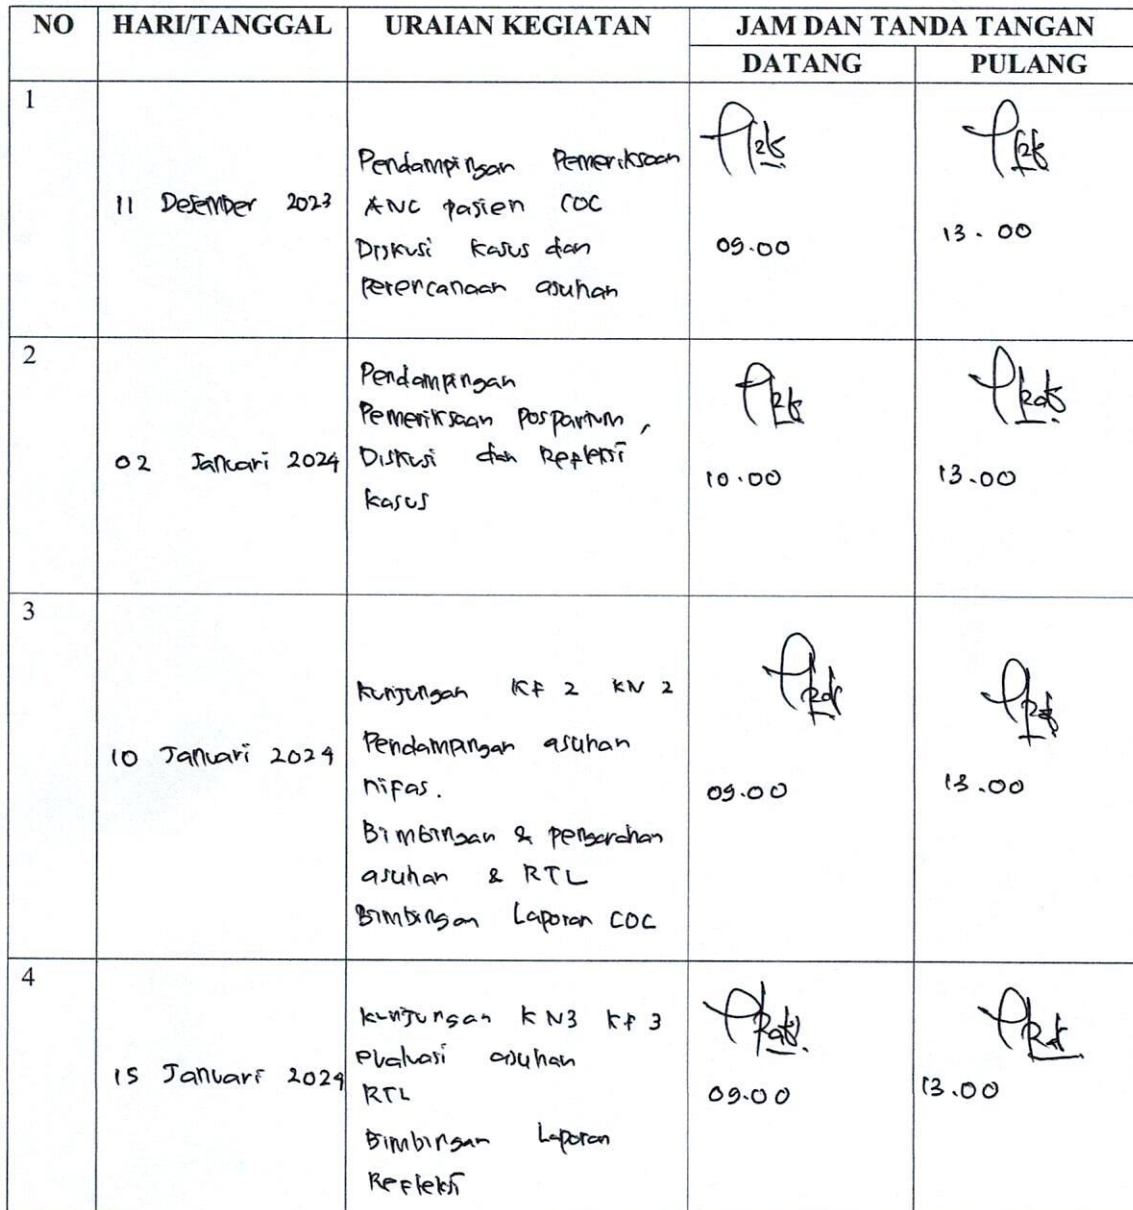 NO HARI/TANGGAL URAIAN KEGIATAN JAM DAN TANDA TANGAN
DATANG PULANG
1
11 Desember 2023
Pendampingan Pemeriksaan
ANC pasien COC
Diskusi kasus dan
perencanaan asuhan
09.00
13.00
2
02 Januari 2024
Pendampingan
Pemeriksaan Pospartum,
Diskusi dan Repleksi
kasus
10.00
13.00
3
10 Januari 2024
Kunjungan KF 2 KN 2
Pendampingan asuhan
nifas.
Bimbingan & pengarahan
asuhan & RTL
Bimbingan Laporan COC
09.00
13.00
4
15 Januari 2024
Kunjungan KN3 KF 3
evaluasi asuhan
RTL
Bimbingan Laporan
Refleksi
09.00
13.00